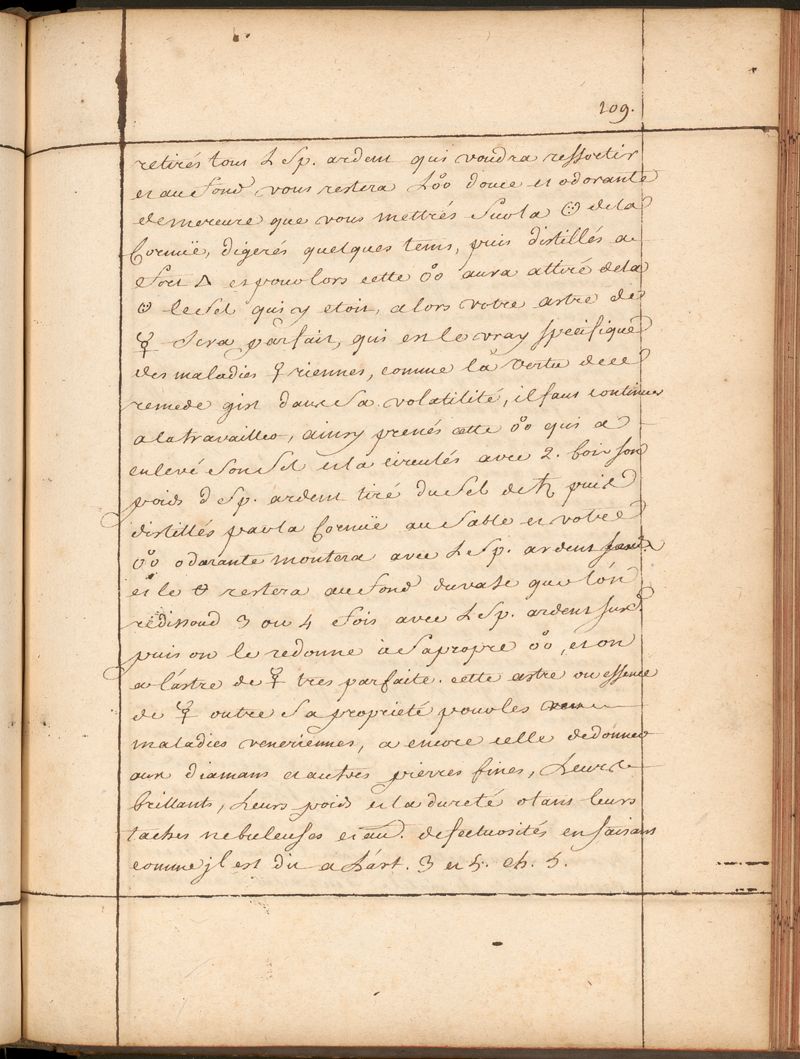 109.
retirés tout L Sp. ardent qui voudra ressortir
et au fond vous restera L'o°o douce et odorante
de mercure que vous mettrés sur la de la
Cornuë, digerés quelques tems, puis distillés a
fort △ et pour lors cette o°o aura attiré de la
le sel qui y etoit, alors votre astre de
☿ sera parfait, qui est le vray specifique
des maladies ♀riennes, comme la vertu de ce
remede gist dans sa volatilité, il faut continuer
a la travailler, ainsy prenés cette o°o qui a
enlevé son sel et la circulés avec 2. fois son
poids d Sp. ardent tiré du sel de ♄ puis
distillés par la Cornuë au sable et votre
o°o odorante montera avec L Sp. ardent
et le restera au fond du vase que l'on
redissoud 3 ou 4 fois avec L Sp. ardent susd.
puis on le redonne à sa propre o°o, et on
a l'astre de ☿ tres parfaite. cette astre ou essence
de ☿ outre sa proprieté pour les
maladies veneriennes, a encore celle de donner
aux diamans et autres pierres fines, Leurs
brillants, Leurs poids et la dureté otant leurs
taches nebuleuses et au. defectuosités en faisant
comme jl est dit a L'art. 3 et 5. ch. 5.